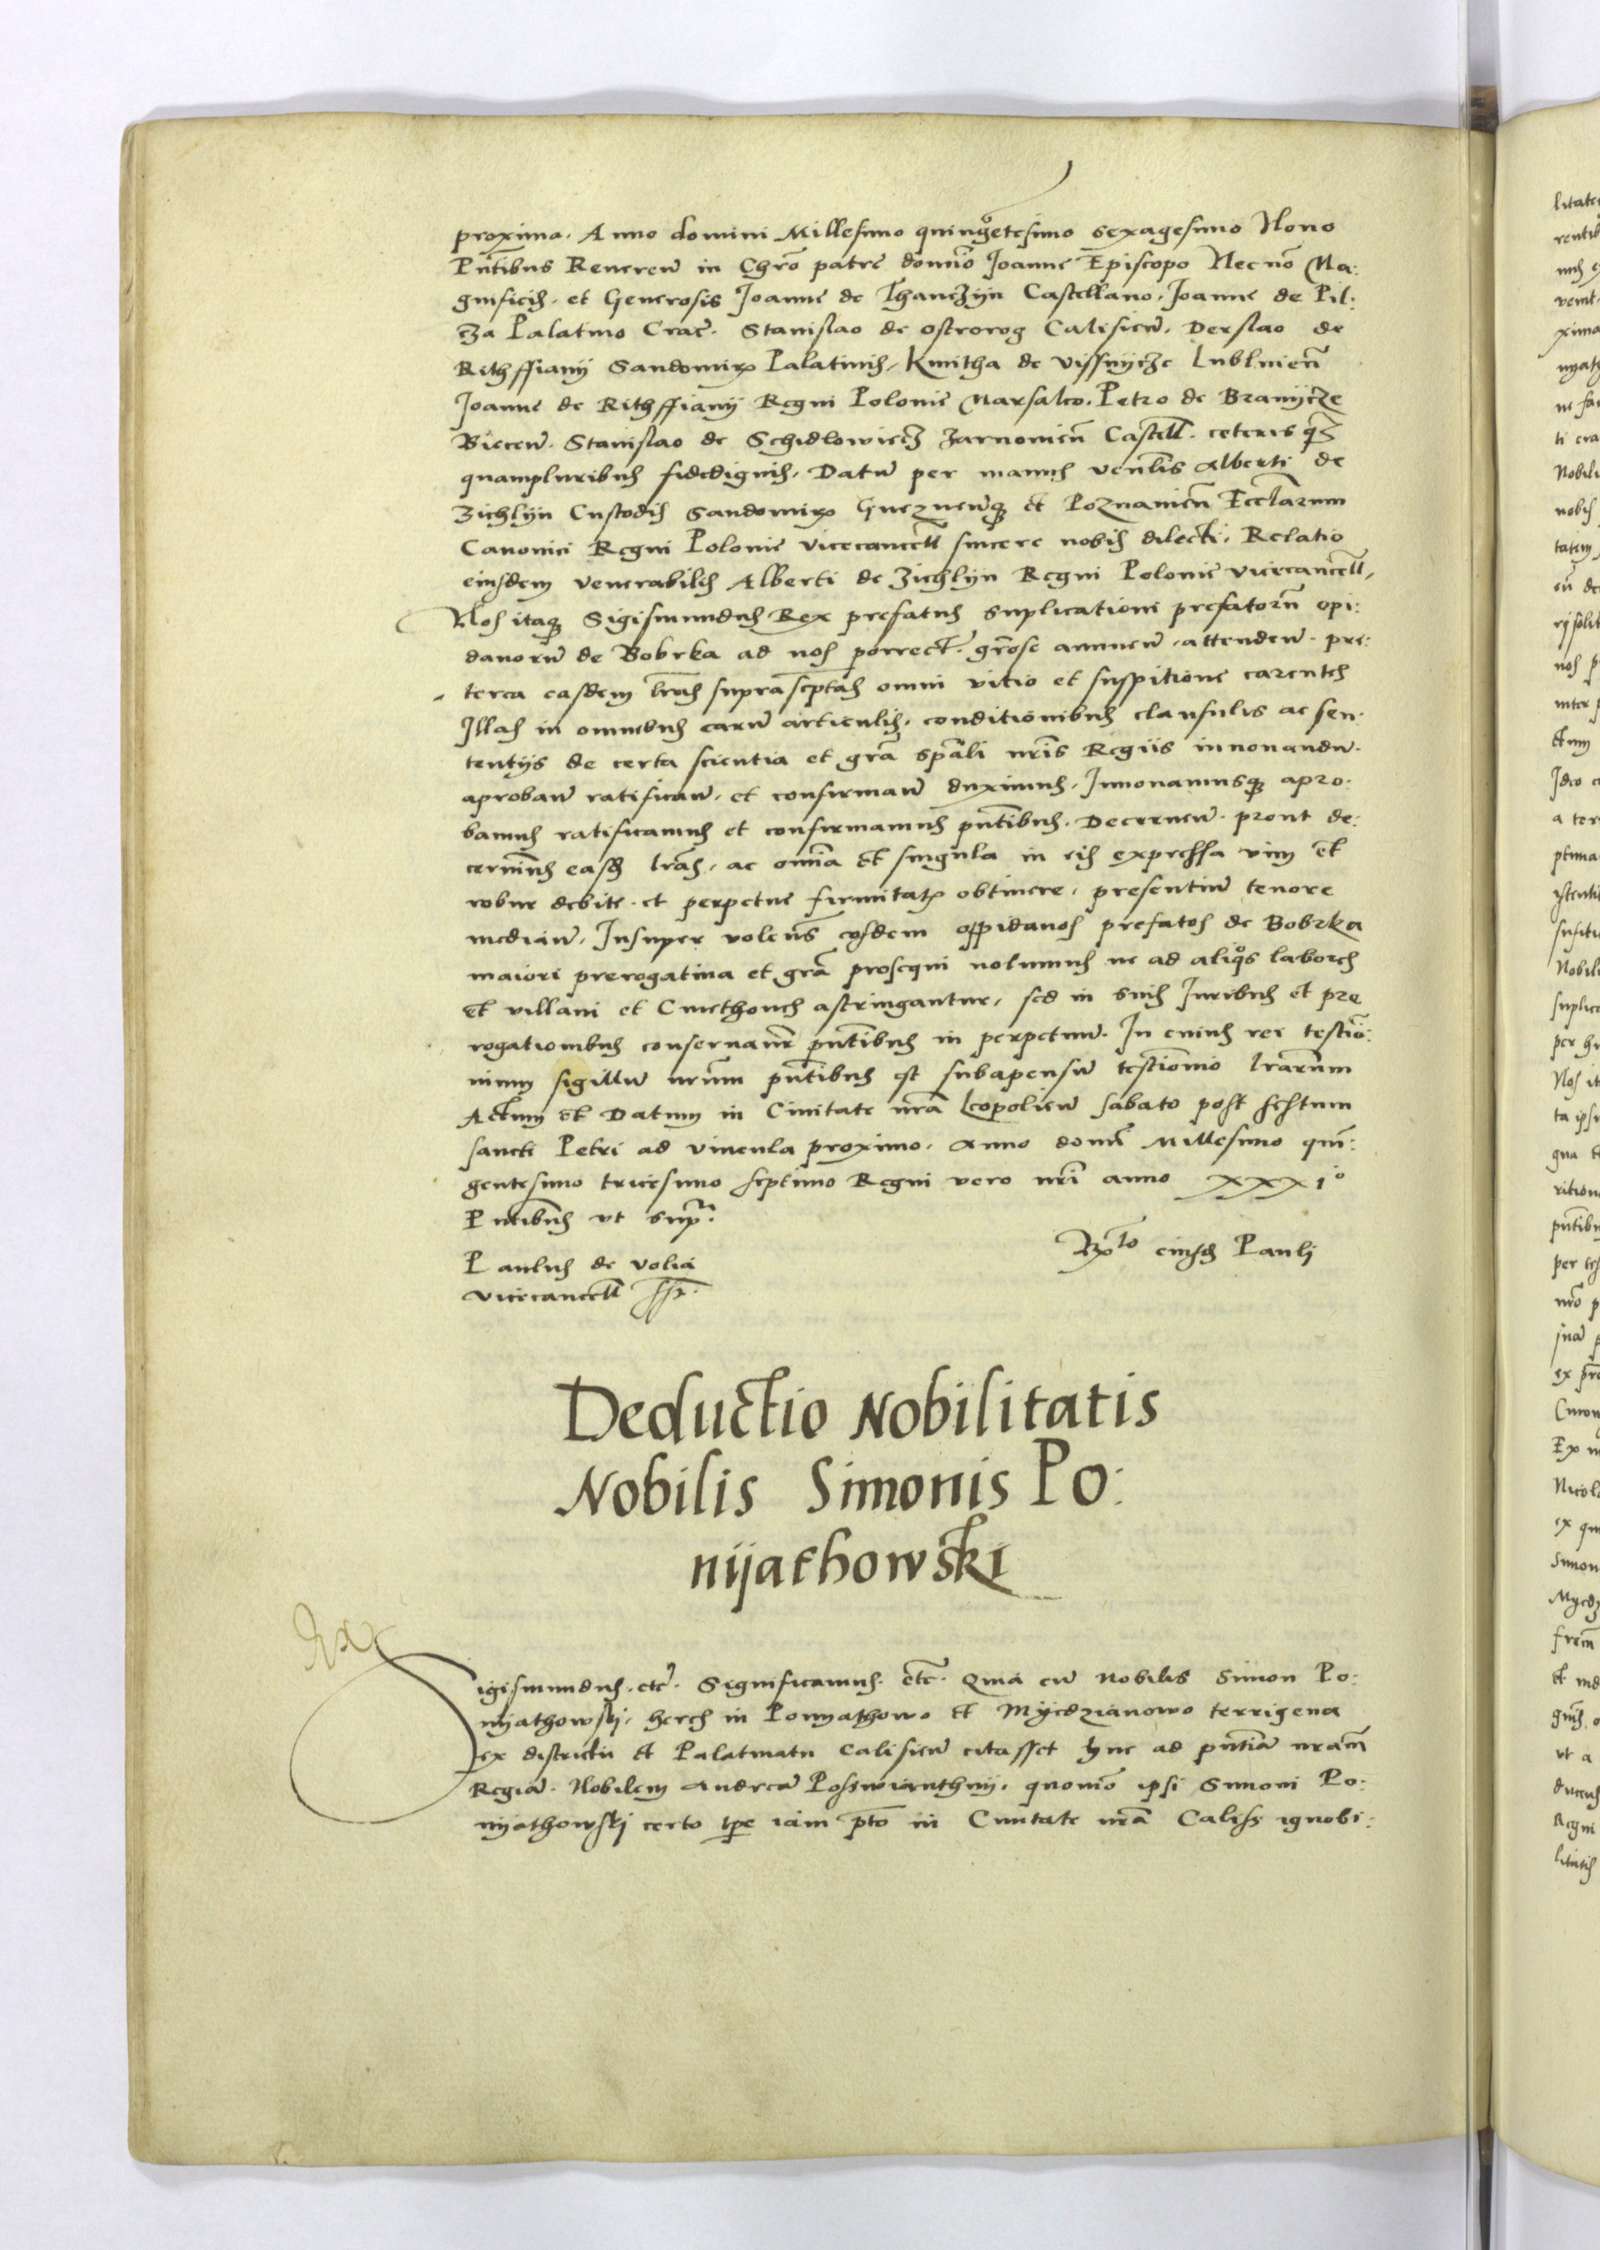 proxima. Anno domini Millesimo quingetesimo sexagesimo Nono
Pntibus Reveren in Chro patre domino Joanne Episcopo Necno Ma:
gnificis. et Generosis Joanne de Thanczijn Castellano. Joanne de Pil:
cza Palatino Crac. Stanislao de ostrorog Calisien. Derslao de
Rithffianij Sandomir Palatinis. Kmitha de Vissnijcze Lublinien
Joanne de Rithffianij Regni Polonie Marsalco. Petro de Branijcze
Biecen. Stanislao de Schidlowiecz Zarnonien Castell. ceteris qz
quampluribus fidedignis. Datum per manus venlis Alberti de
Zichlijn Custodis Sandomir Gneznenqz et Poznanien Ecclarum
Canonici Regni Polonie vicecancell sincere nobis dilecti. Relatio
eiusdem venerabilis Alberti de Zichlijn Regni Polonie vicecancell,
Nos itaqz Sigismundus Rex prefatus suplicationi prefatoru opi:
danoru de Bobrka ad nos porrect. grose annuen. attenden. pre:
terea easdem lras suprascptas omni vitio et suspitione carentes
Illas in omnibus earu articulis. conditionibus clausulis ac sen.
tentijs de certa scientia et gra spali nris Regiis innonandu.
aproban ratifican. et confirman duximus. Innouamusqz apro.
bamus ratificamus et confirmamus pntibus. Decernen. prout de:
cernims easd lras. ac omia et singula in eis expressa vim et
robur debite. et perpetue firmitatis obtinere. presentiu tenore
median. Insuper volens eosdem oppidanos prefatos de Bobrka
maiori prerogatiua et gra prosequi nolumus ne ad aliqos labores
et villani et Cmethones astringantur. sed in suis Juribus et pre
rogationibus conseruanr pntibus in perpetuu. In cuius rei testio:
nium sigillu nrum pntibus est subapensu testionio lrarum
Actum et Datum in Ciuitate nra Leopolien sabato post festum
sancti Petri ad vincula proximo. Anno domi Millesimo quin:
gentesimo tricesimo septimo Regni vero nri anno XXXIo
Pntibus vt supra
Paulus de Volia
Rto eiusd Pauli
vicecancell sst.
Deductio Nobilitatis
Nobilis Simonis Po:
nijathowski
Sigismundus. etc. Significamus. etc. Quia cu Nobilis Simon Po:
nijathowskj. heres in Ponyathowo et Myedzianowo terrigena
ex districtu et Palatinatu Calisien citasset huc ad pntia nram
Regia. Nobilem Andrea Posswianthnij. quomo ipsi Simoni Po:
nijathowskj certo tpe iam pto in Ciuitate nra Caliss ignobi: